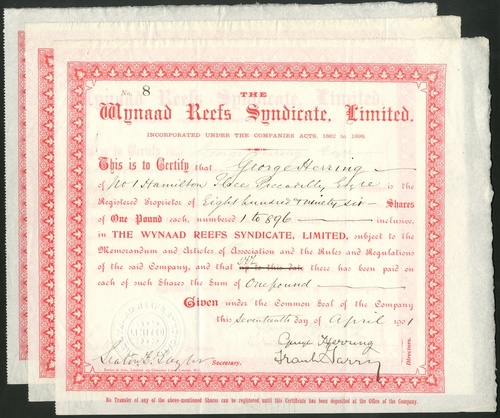 No. 8
THE
Wynaad Reefs Syndicate, Limited.
INCORPORATED UNDER THE COMPANIES ACTS, 1862 to 1898.
This is to Certify that George Herring
of No 1 Hamilton Place Piccadilly, Esqre is the
Registered Proprietor of Eight hundred & ninety six Shares
of One Pound each, numbered 1 to 896 inclusive,
in THE WYNAAD REEFS SYNDICATE, LIMITED, subject to the
Memorandum and Articles of Association and the Rules and Regulations
of the said Company, and that up to this date there has been paid on
each of such Shares the Sum of One pound
Given under the Common Seal of the Company
this Seventeenth day of April 1901
George Herring
Secretary.
Frank
Directors.
No Transfer of any of the above-mentioned Shares can be registered until this Certificate has been deposited at the Office of the Company.